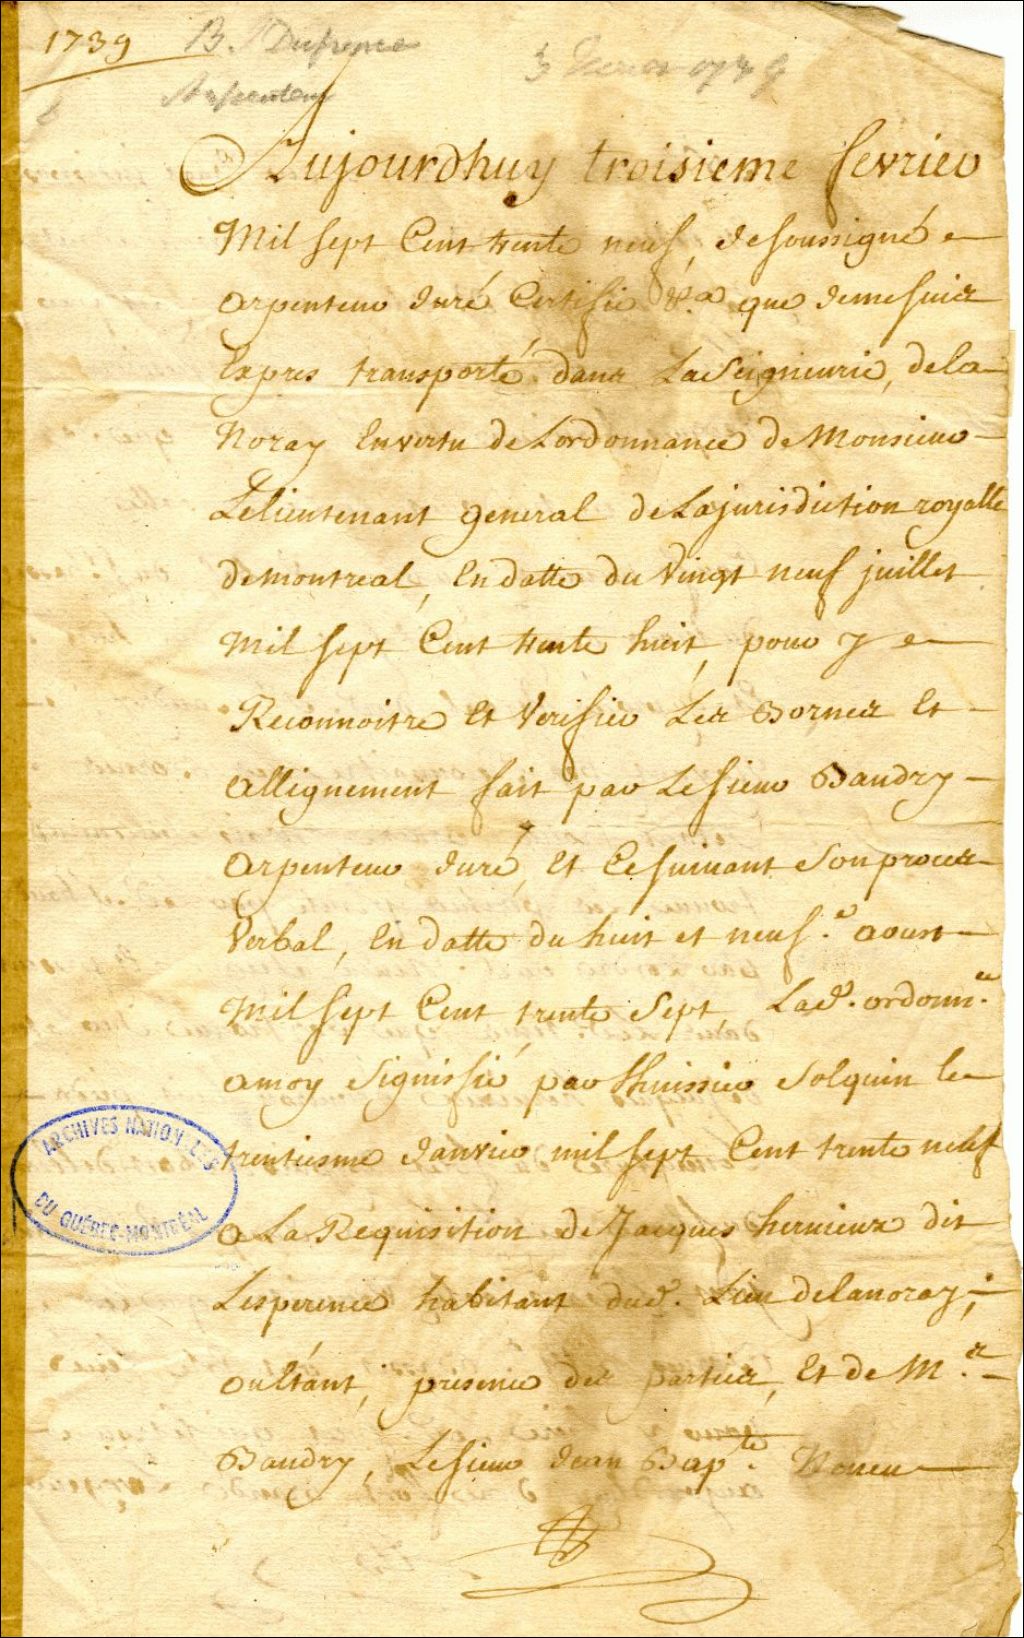 1739
B. Dufresne
Arpenteur
3 fevrier 1739
Aujourdhuy troisieme fevrier
Mil sept Cent trente neuf, Je soussigné
arpenteur Juré Certifie &.a que Je me suis
Expres transporté dans La Seigneurie, de la
Noray En vertu de Lordonnance de Monsieur
Le lieutenant general de La jurisdiction royalle
de montreal, En datte du Vingt neuf juillet
Mil sept Cent trente huit, pour y
Reconnoitre Et Verifier Les Bornes Et
allignement fait par Le sieur Baudry
arpenteur Juré, Et Ce suivant Son proces
Verbal, En datte du huit et neuf.e aoust
Mil sept Cent trente Sept, Lad. ordonn.ce
a moy Signiffié par Lhuissier Dolquin le
trentiesme Janvier mil sept Cent trente neuf
a La Requisition de Jacques hervieux dit
Lesperence habitant dud. Lieu de lanoray;
ou Etant, presence des parties, Et de M.r
Baudry, Le sieur Jean Bap.te Neveu
ARCHIVES NATIONALES
DU QUÉBEC-MONTRÉAL